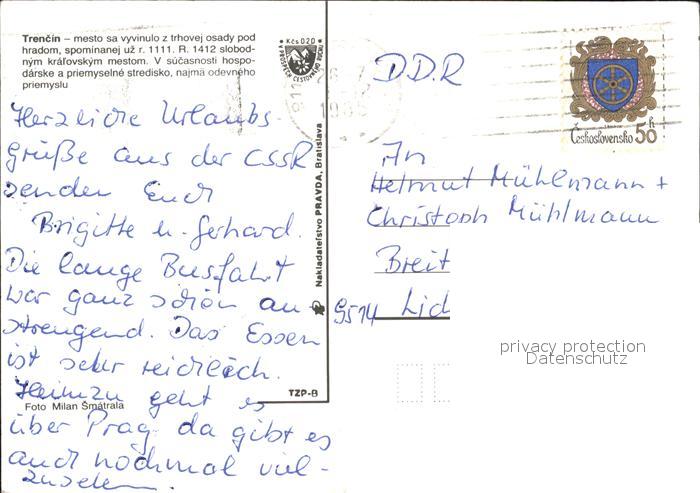 Trenčín – mesto sa vyvinulo z trhovej osady pod
hradom, spomínanej už r. 1111. R. 1412 slobod-
ným kráľovským mestom. V súčasnosti hospo-
dárske a priemyselné stredisko, najmä odevného
priemyslu
Kčs 0,20
Herzliche Urlaubs-
grüße aus der CSSR
senden Euch
Brigitte u. Gerhard.
Die lange Busfahrt
war ganz schön an-
strengend. Das Essen
ist sehr reichlich.
Heimzu geht es
über Prag, da gibt es
auch nochmal viel
zu sehen.
Foto Milan Šmátrala
TZP-B
Nakladateľstvo PRAVDA, Bratislava
DDR
Československo 50 h
An
Helmut Mühlmann +
Christoph Mühlmann
Breit
9514 Lid
privacy protection
Datenschutz